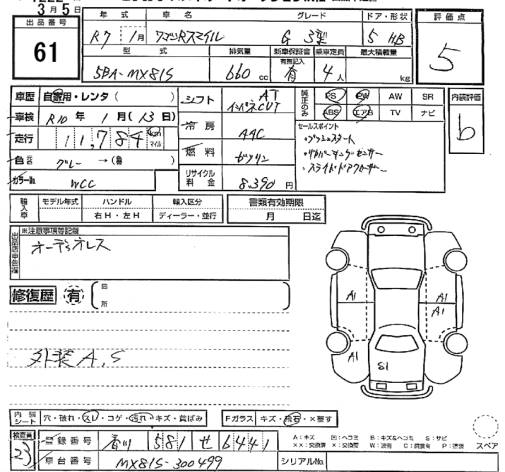 3月5日
出品番号 61
年式 車名 グレード ドア・形状 評価点
R7 1月 ワゴンRスマイル G 3型 5 HB 5
型式 排気量 新車保証書 乗車定員 最大積載量
5BA-MX81S 660cc 有無記入 有 4人 kg
車歴 自家用・レンタ ( )
車検 R10年 1月 (13日)
走行 11,784 km マイル
色 グレー →(替 )
カラーNo. WCC
シフト AT インパネCVT
冷房 AAC
燃料 ガソリン
リサイクル料金 8,390円
純正のみ PS PW AW SR
ABS エアB TV ナビ
セールスポイント
・プッシュスタート
・スライドドアクローザー
内装評価 b
輸入車 モデル年式 ハンドル 輸入区分 書類有効期限
右H・左H ディーラー・並行 月 日迄
※注意事項等記載
オーディオレス
修復歴 有 箇所
外装A,S
A1 A1
A1
A1 S1
内装シート 穴・破れ・スレ・コゲ・汚れ・キズ・黄ばみ Fガラス キズ・飛石・×要す
検査員 23
登録番号 香川 581 せ 6441
車台番号 MX81S-300499 シリアルNo.
A:キズ 凹:ヘコミ B:キズ&ヘコミ S:サビ
XX:交換済 X:交換要 W:波有 C:腐食有 P:塗装 スペア